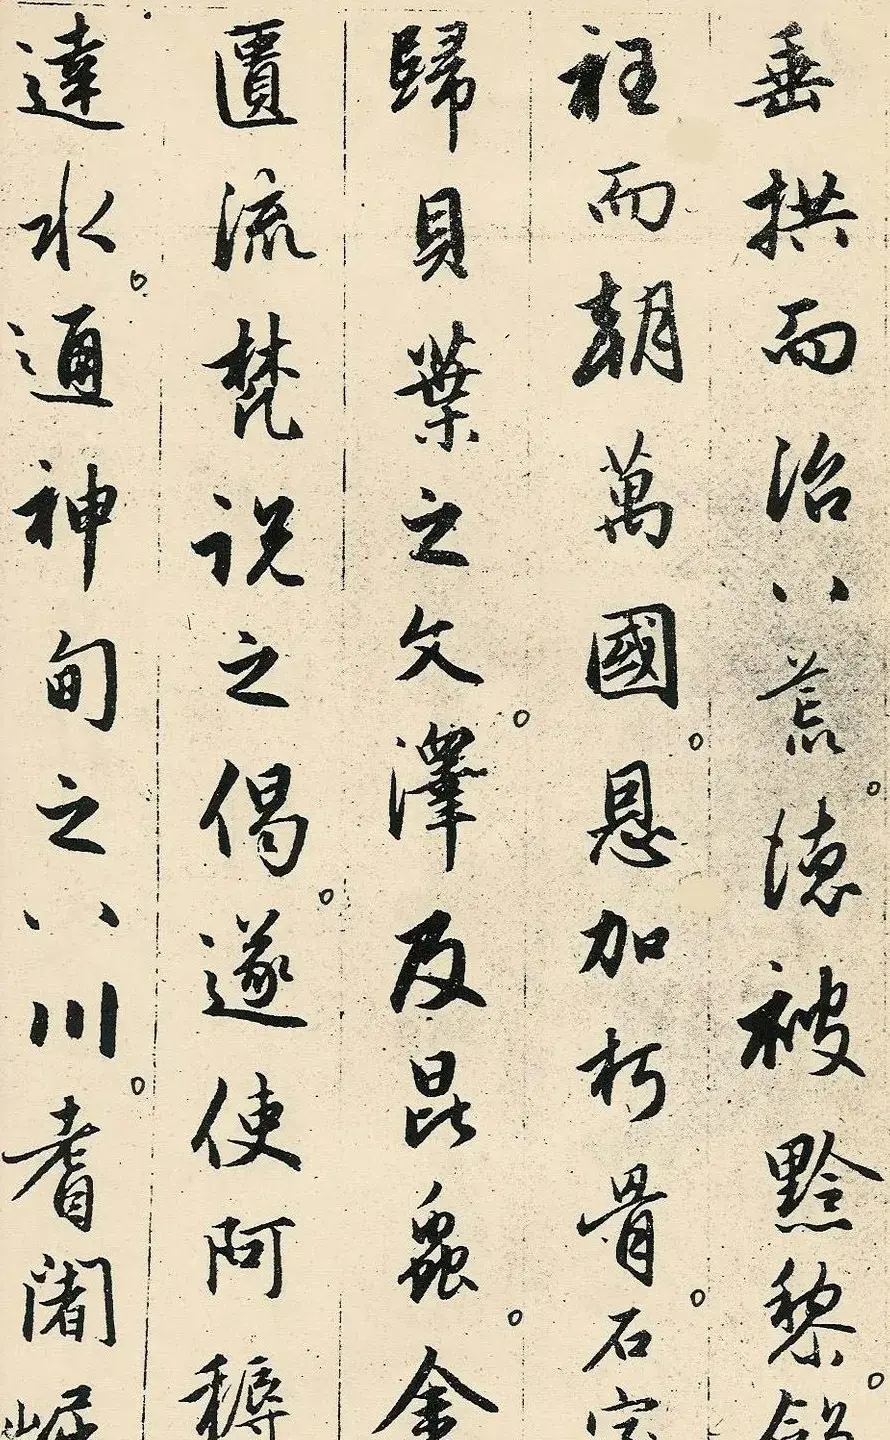 垂拱而治八荒。德被黔黎。斂
衽而朝萬國。恩加朽骨。石室
歸貝葉之文。澤及昆蟲。金
匱流梵說之偈。遂使阿耨
達水。通神甸之八川。耆闍崛